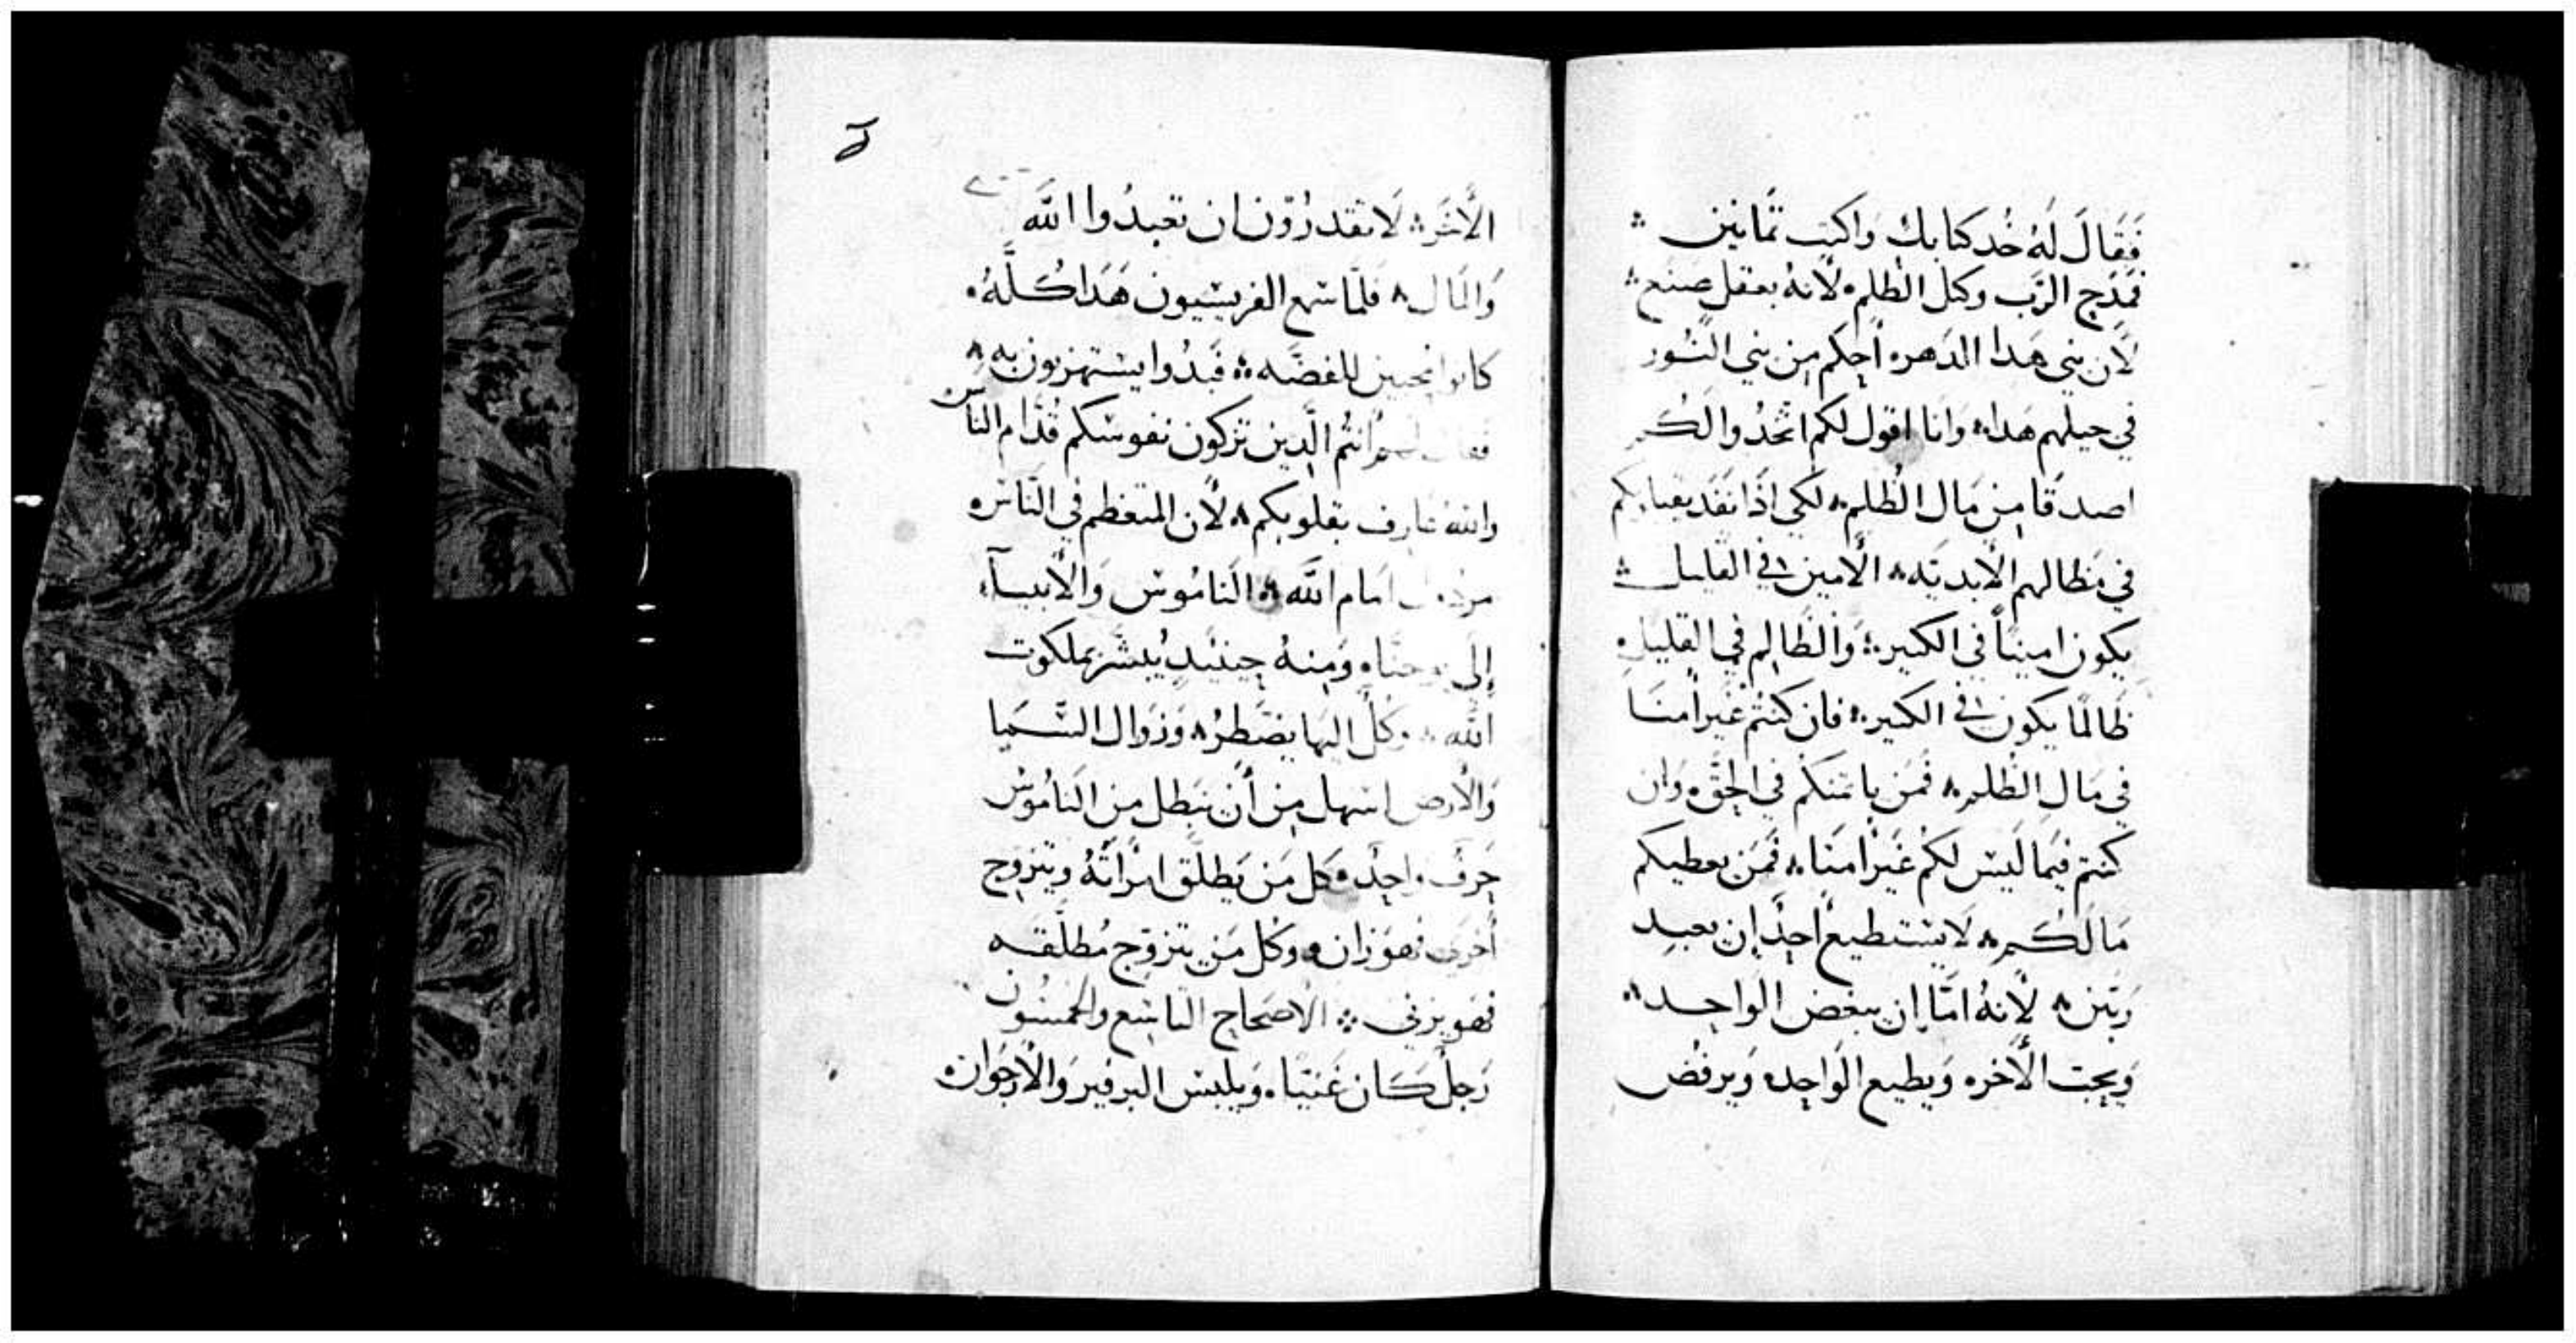 فَقَالَ لَهُ خُد كتابك وَاكتب ثمانين
فمَدَح الرَب وكيل الظلم لأنهُ بعقل صَنَع
لأن بني هَدا الدَهر أحكم مِن بني النُور
في حيلهم هَدا وَانا اقول لكم اتخدُوا لكُم
اصدقا مِن مَال الظلم لكي اذَا نفَد يقبلوكم
في مَظالهم الأبديَه الأمين في القليل
يكون امينًا في الكتير وَالظالم في القليل
ظالمًا يكون في الكتير فان كنتم غَير امنَا
في مَال الظلم فمَن يامَنكم في الحَق وَان
كنتم فيمَا ليسَ لكم غَير امنَا فمَن يعطيكم
مَا لكُم لا يستطيع احدٌ ان يعبد
ربَين لأنهُ امَّا ان يبغض الوَاحد
وَيحِبّ الأخر وَيطيع الوَاحد وَيرفض
الأخَر لا تقدرُوْن ان تعبدُوا اللَّه
وَالمَال فلمَّا سمع الفريسيون هَدا كُلَّهُ
كانوا محبين للفضَه فبدُوا يستهزون به
فقال لهم أنتُم الَّدين تزكون نفوسكم قُدَّام الناس
والله عارف بقلوبكم لأن المتعظم في النَاس
مرذول امام اللَّه النَامُوس وَالأنبيآء
إلى يوحنَّا وَمِنهُ حينئدٍ يُبشَّر بملكوت
اللَّه وَكُلٌ اليهَا يضطرُ وَزوَال السَّمَا
وَالأرض اسهل مِن أن يَبطل مِن النَامُوسُ
حَرفٌ واحِد كل مَن يَطلّق امرَأتَهُ ويتزوج
أخرى فهوَ زان وَكُل مَن يتزوّج مُطلّقه
فهو يزني الاصحَاح التاسع والخمسُون
رَجلٌ كَان غَنيًّا وَيلبس البرفير وَالأرجوَان